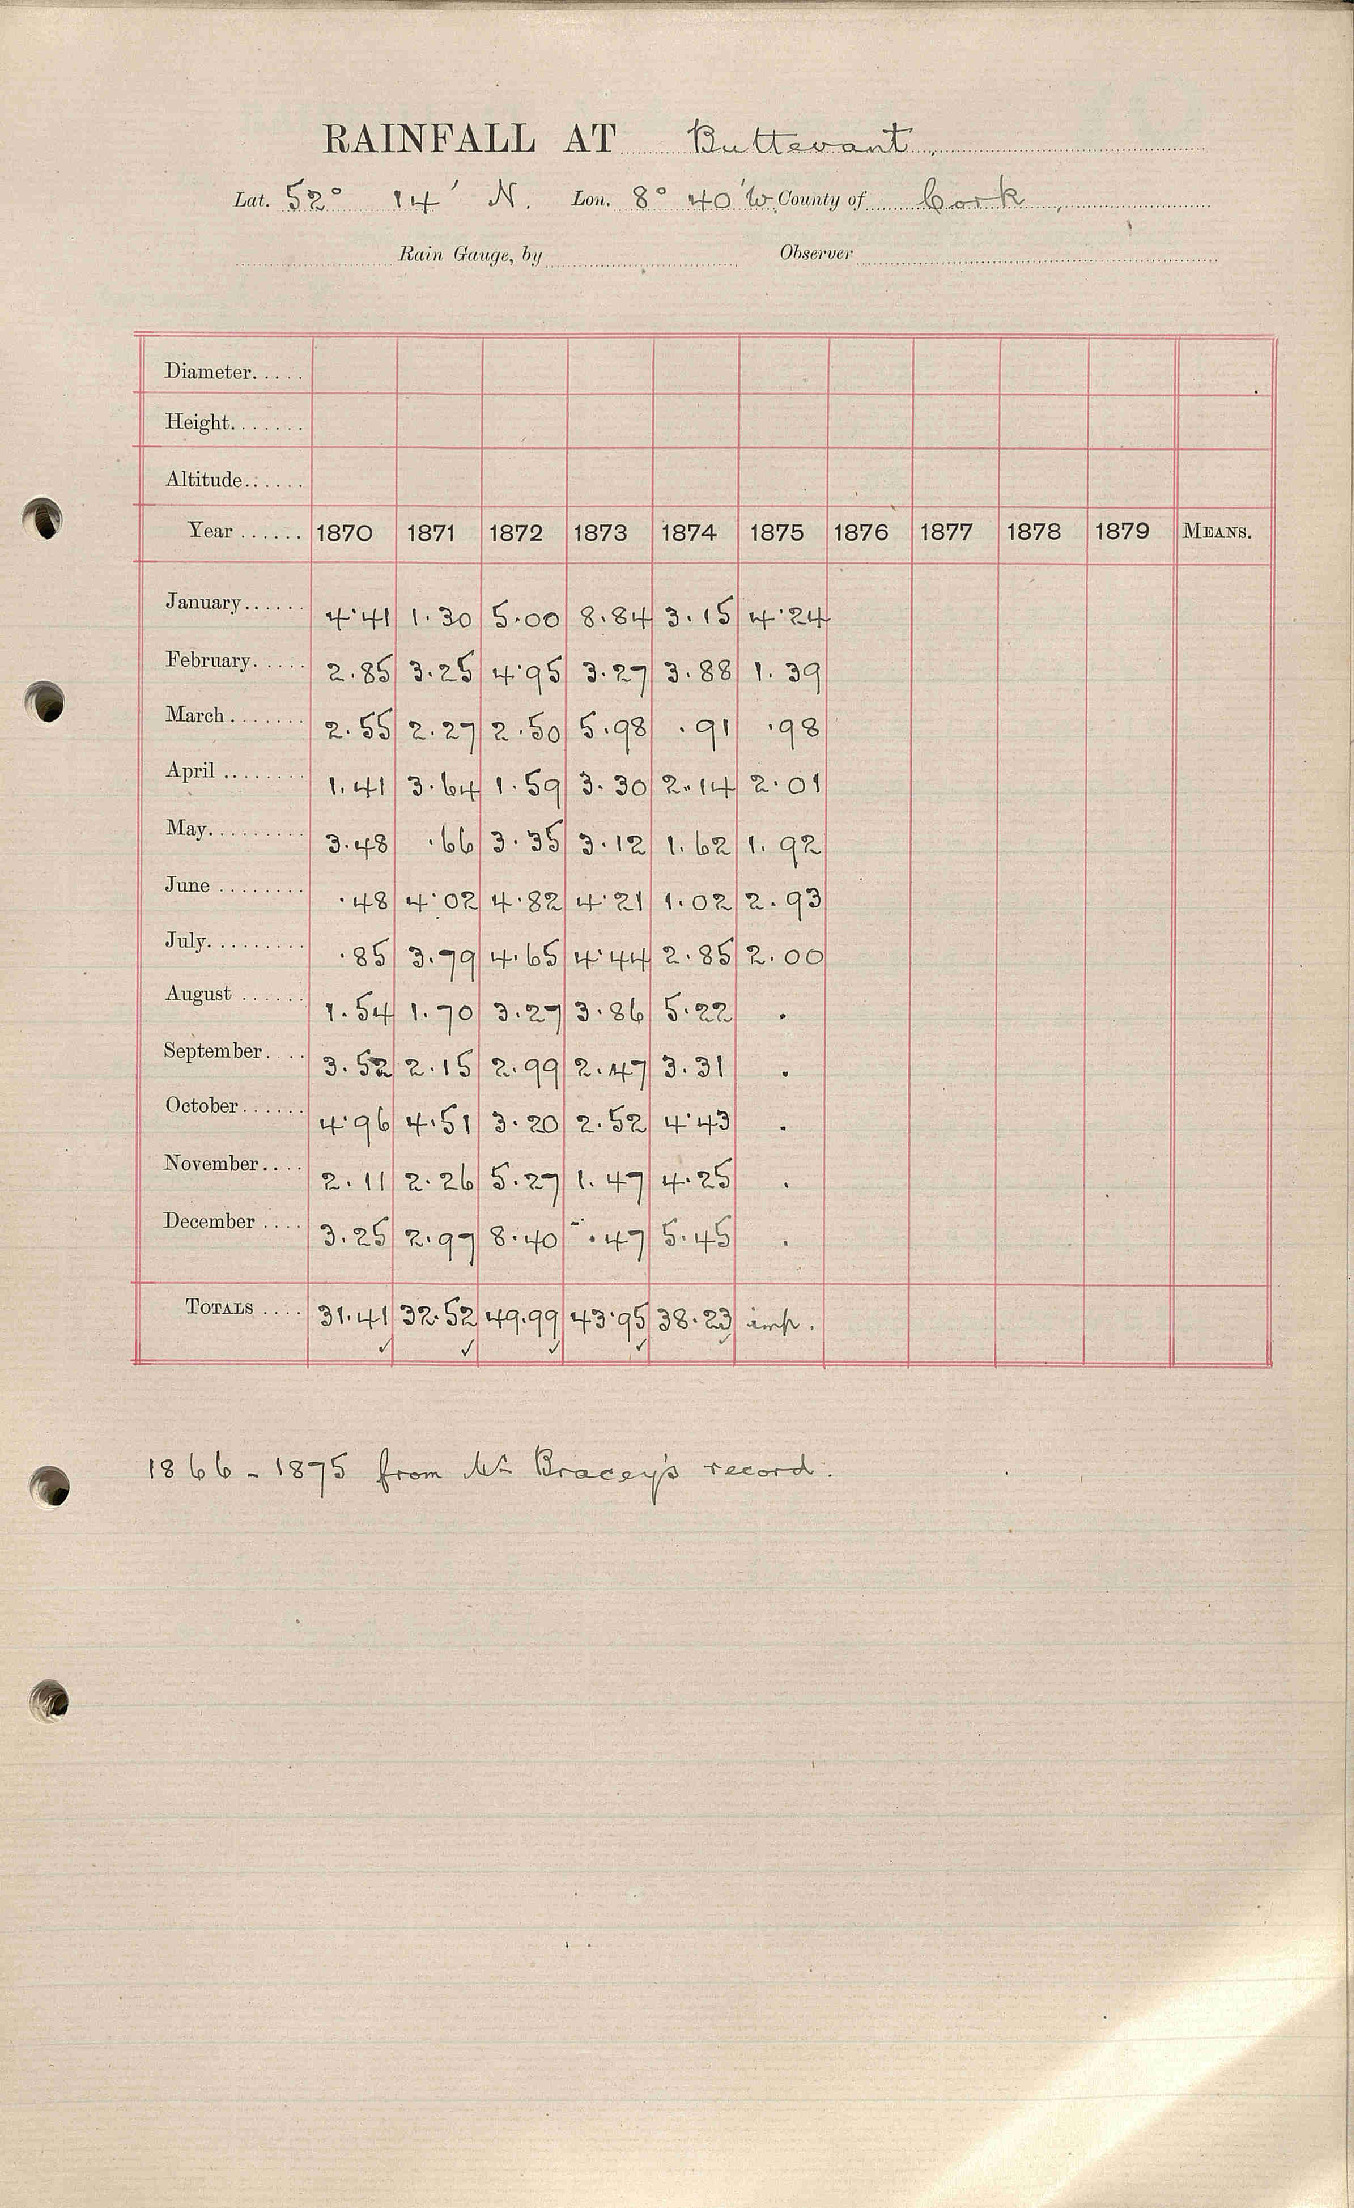 RAINFALL AT Buttevant.
Lat. 52° 14' N. Lon. 8° 40' W. County of Cork.
Rain Gauge, by Observer
Diameter.....
Height.......
Altitude.......
Year ...... 1870 1871 1872 1873 1874 1875 1876 1877 1878 1879 MEANS.
January...... 4.41 1.30 5.00 8.84 3.15 4.24
February..... 2.85 3.25 4.95 3.27 3.88 1.39
March....... 2.55 2.27 2.50 5.98 .91 .98
April ........ 1.41 3.64 1.59 3.30 2.14 2.01
May......... 3.48 .66 3.35 3.12 1.62 1.92
June ........ .48 4.02 4.82 4.21 1.02 2.93
July......... .85 3.79 4.65 4.44 2.85 2.00
August ...... 1.54 1.70 3.27 3.86 5.22 .
September.... 3.52 2.15 2.99 2.47 3.31 .
October...... 4.96 4.51 3.20 2.52 4.43 .
November.... 2.11 2.26 5.27 1.47 4.25 .
December .... 3.25 2.97 8.40 .47 5.45 .
TOTALS .... 31.41 32.52 49.99 43.95 38.23 imp.
1866 - 1875 from Mr Bracey's record.